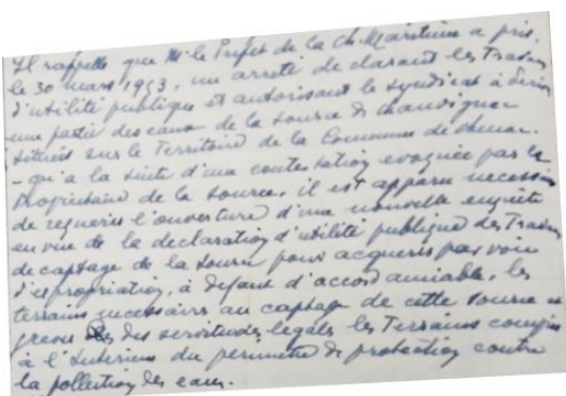 Il rappelle que Mr le Préfet de la Ch. Maritime a pris,
le 30 mars 1953, un arrêté déclarant les Travaux
d'utilité publique et autorisant le Syndicat à dériver
une partie des eaux de la source de
situées sur le Territoire de la Commune de Chenac.
- qu'a la suite d'une contestation evoquée par le
Propriétaire de la source, il est apparu necessaire
de requerir l'ouverture d'une nouvelle enquête
en vue de la declaration d'utilité publique des Travaux
de captage de la source pour acquerir par voie
d'expropriation, à defaut d'accord amiable, les
terrains necessaires au captage de cette source et
grever des servitudes legales les Terrains compris
à l'interieur du perimetre de protection contre
la pollution des eaux.